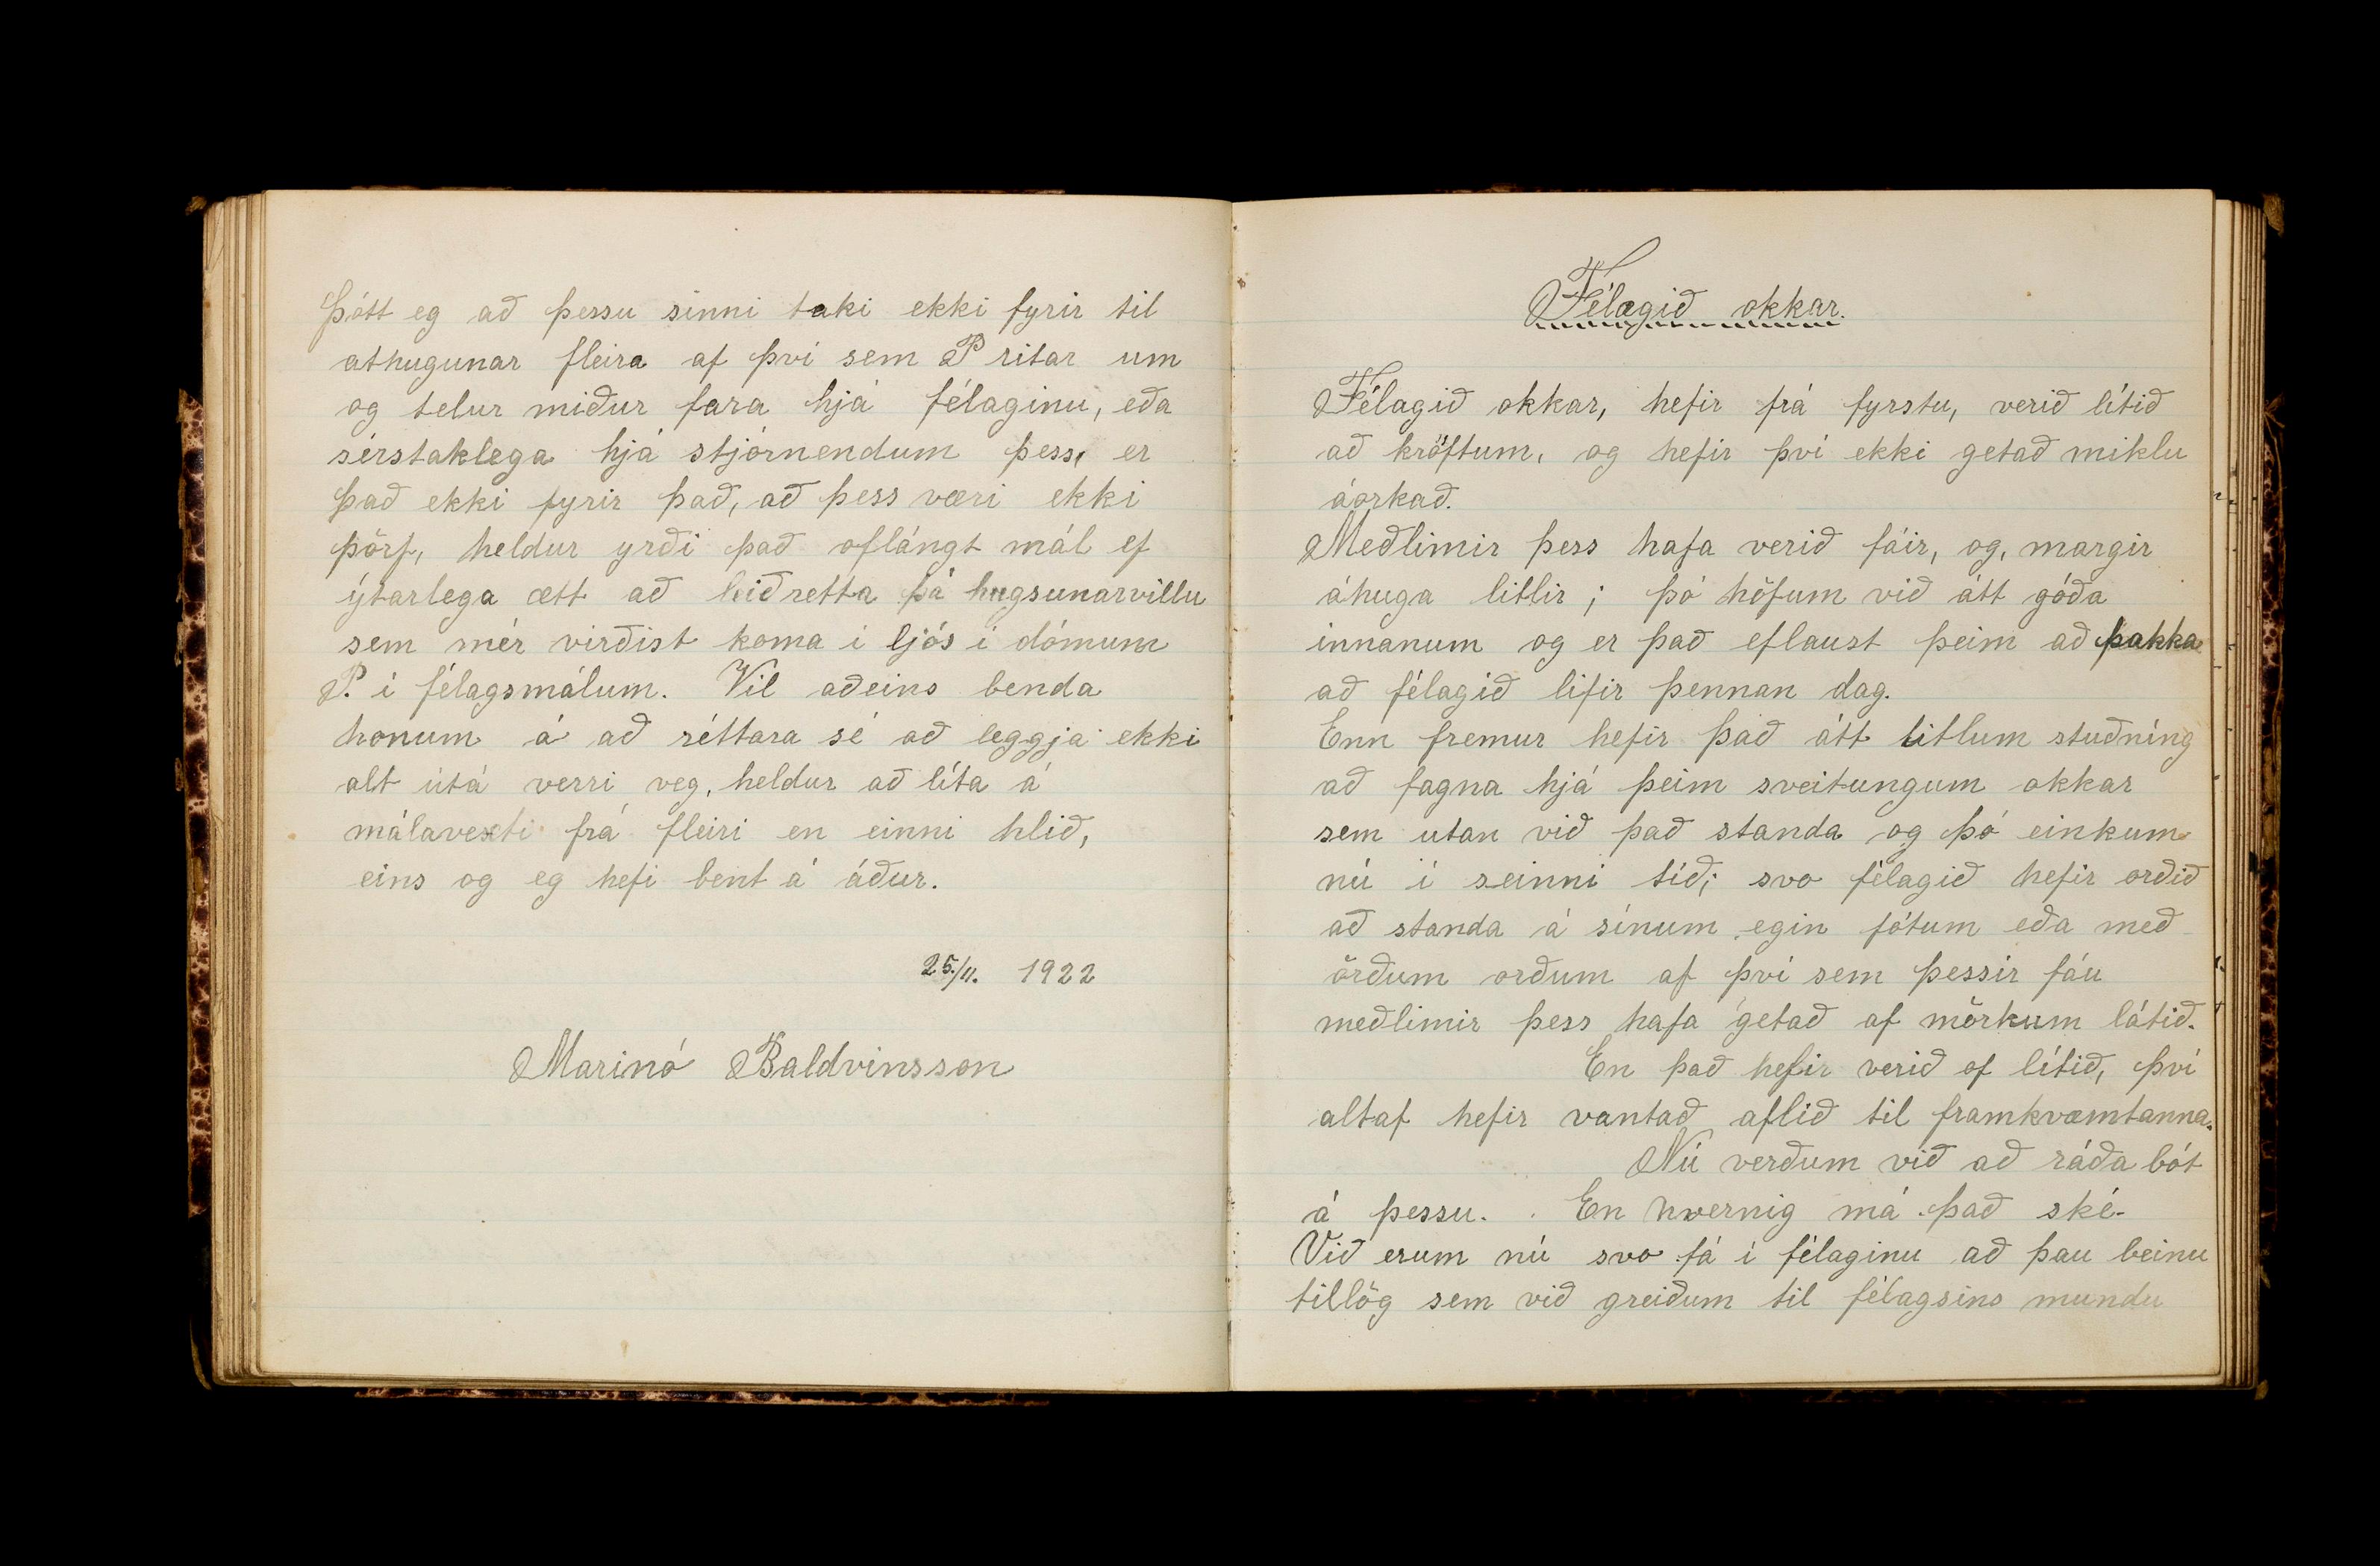 Þótt eg að þessu sinni taki ekki fyrir til
athugunar fleira af því sem P ritar um
og telur miður fara hjá félaginu, eða
sérstaklega hjá stjórnendum þess, er
það ekki fyrir það, að þess væri ekki
þörf, heldur yrði það oflángt mál ef
ýtarlega ætt að leiðretta þá hugsunarvillu
sem mér virðist koma í ljós í dómum
P. í félagsmálum. Vil aðeins benda
honum á að réttara sé að leggja ekki
alt útá verri veg, heldur að líta á
málavexti frá fleiri en einni hlið,
eins og eg hefi bent á áður.
25./11. 1922
Marinó Baldvinsson
Félagið okkar.
Félagið okkar, hefir frá fyrstu, verið lítið
að kröftum, og hefir því ekki getað miklu
áorkað.
Meðlimir þess hafa verið fáir, og, margir
áhuga litlir; þó höfum við átt góða
innanum og er það eflaust þeim að þakka
að félagið lifir þennan dag.
Enn fremur hefir það átt litlum stuðníng
að fagna hjá þeim sveitungum okkar
sem utan við það standa og þó einkum
nú í seinni tíð; svo félagið hefir orðið
að standa á sínum egin fótum eða með
örðum orðum af því sem þessir fáu
meðlimir þess hafa getað af mörkum látið.
En það hefir verið of lítið, því
altaf hefir vantað aflið til framkvæmtanna.
Nú verðum við að ráða bót
á þessu. En hvernig má það ské.
Við erum nú svo fá í félaginu að þau beinu
tillög sem við greiðum til félagsins mundu